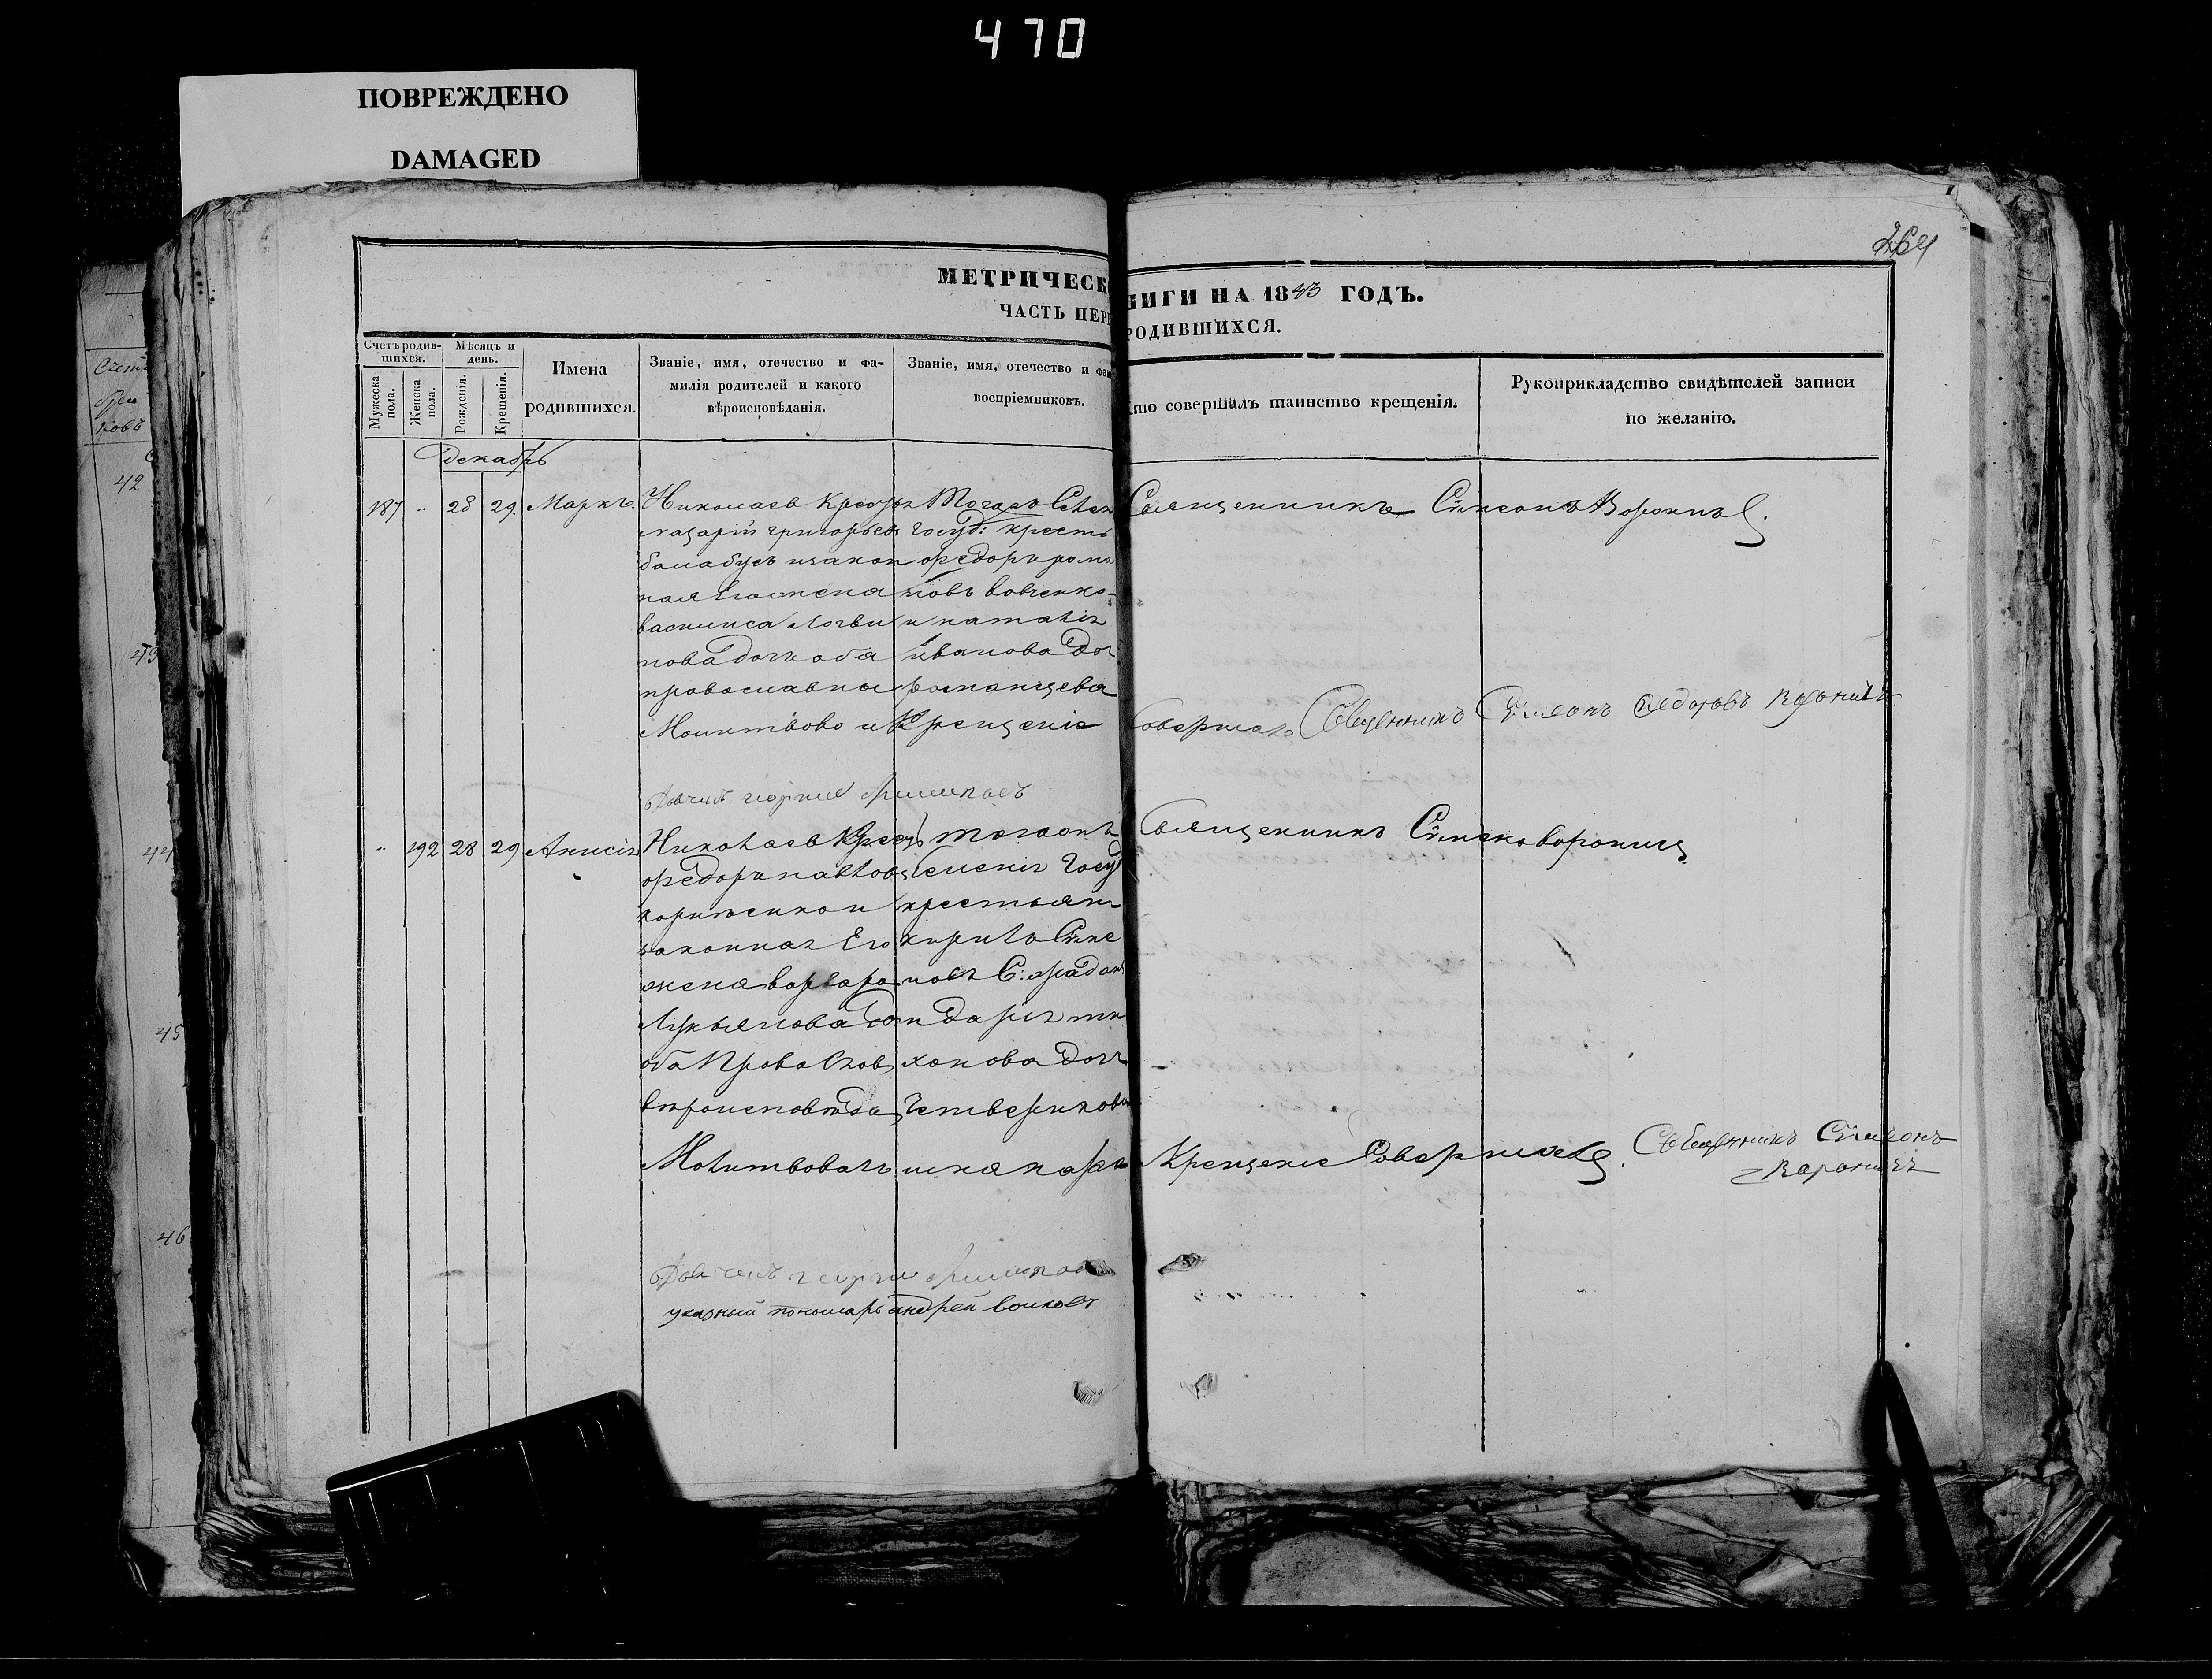 470
ПОВРЕЖДЕНО
DAMAGED
264
МЕТРИЧЕСК НИГИ НА 1843 ГОДЪ.
ЧАСТЬ ПЕРВ РОДИВШИХСЯ.
Счетъ родив-
шихся.
Мужеска
пола.
Женска
пола.
Мѣсяцъ и
день.
Рожденія.
Крещенія.
Имена
родившихся.
Званіе, имя, отечество и фа-
милія родителей и какого
вѣроисповѣданія.
Званіе, имя, отечество и фам
воспріемниковъ.
Кто совершалъ таинство крещенія.
Рукоприкладство свидѣтелей записи
по желанію.
Декабрь
187 " 28 29. Маркъ.
Николаев
назарій григорьевъ
балабусъ и закон
ная Его жена
василиса логви
нова дочь оба
православные
Тогаже
госуд: кресть
федоръ рома
новъ вовченко
и наталія
иванова доч
романцева
Священникъ Симеонъ Воронич
Молитвово и Крещеніе совершалъ Священникъ Симеонъ Федоровъ Вороничъ
" 192 28 29 Анисія
Николаев
федоръ павлов
законная Его
жена варвара
Лукьянова до
оба Право слов
вѣроисповѣда
тогаже
селенія Госуд
крестьян
кирилъ Симе
новъ
и дарія ти
ханова доч
Четверикова
Священникъ Симеонъ воронич
Молитвовалъ и Крещеніе Совершалъ Священникъ Симеонъ
Вороничъ
указный пономарь андрей волковъ
42
44
45
46